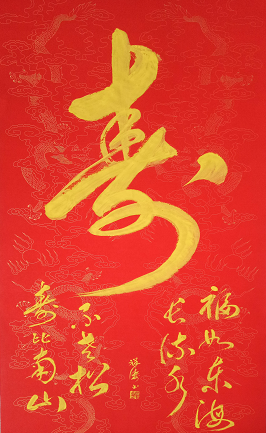 寿
福如东海
长流水
寿比南山
不老松